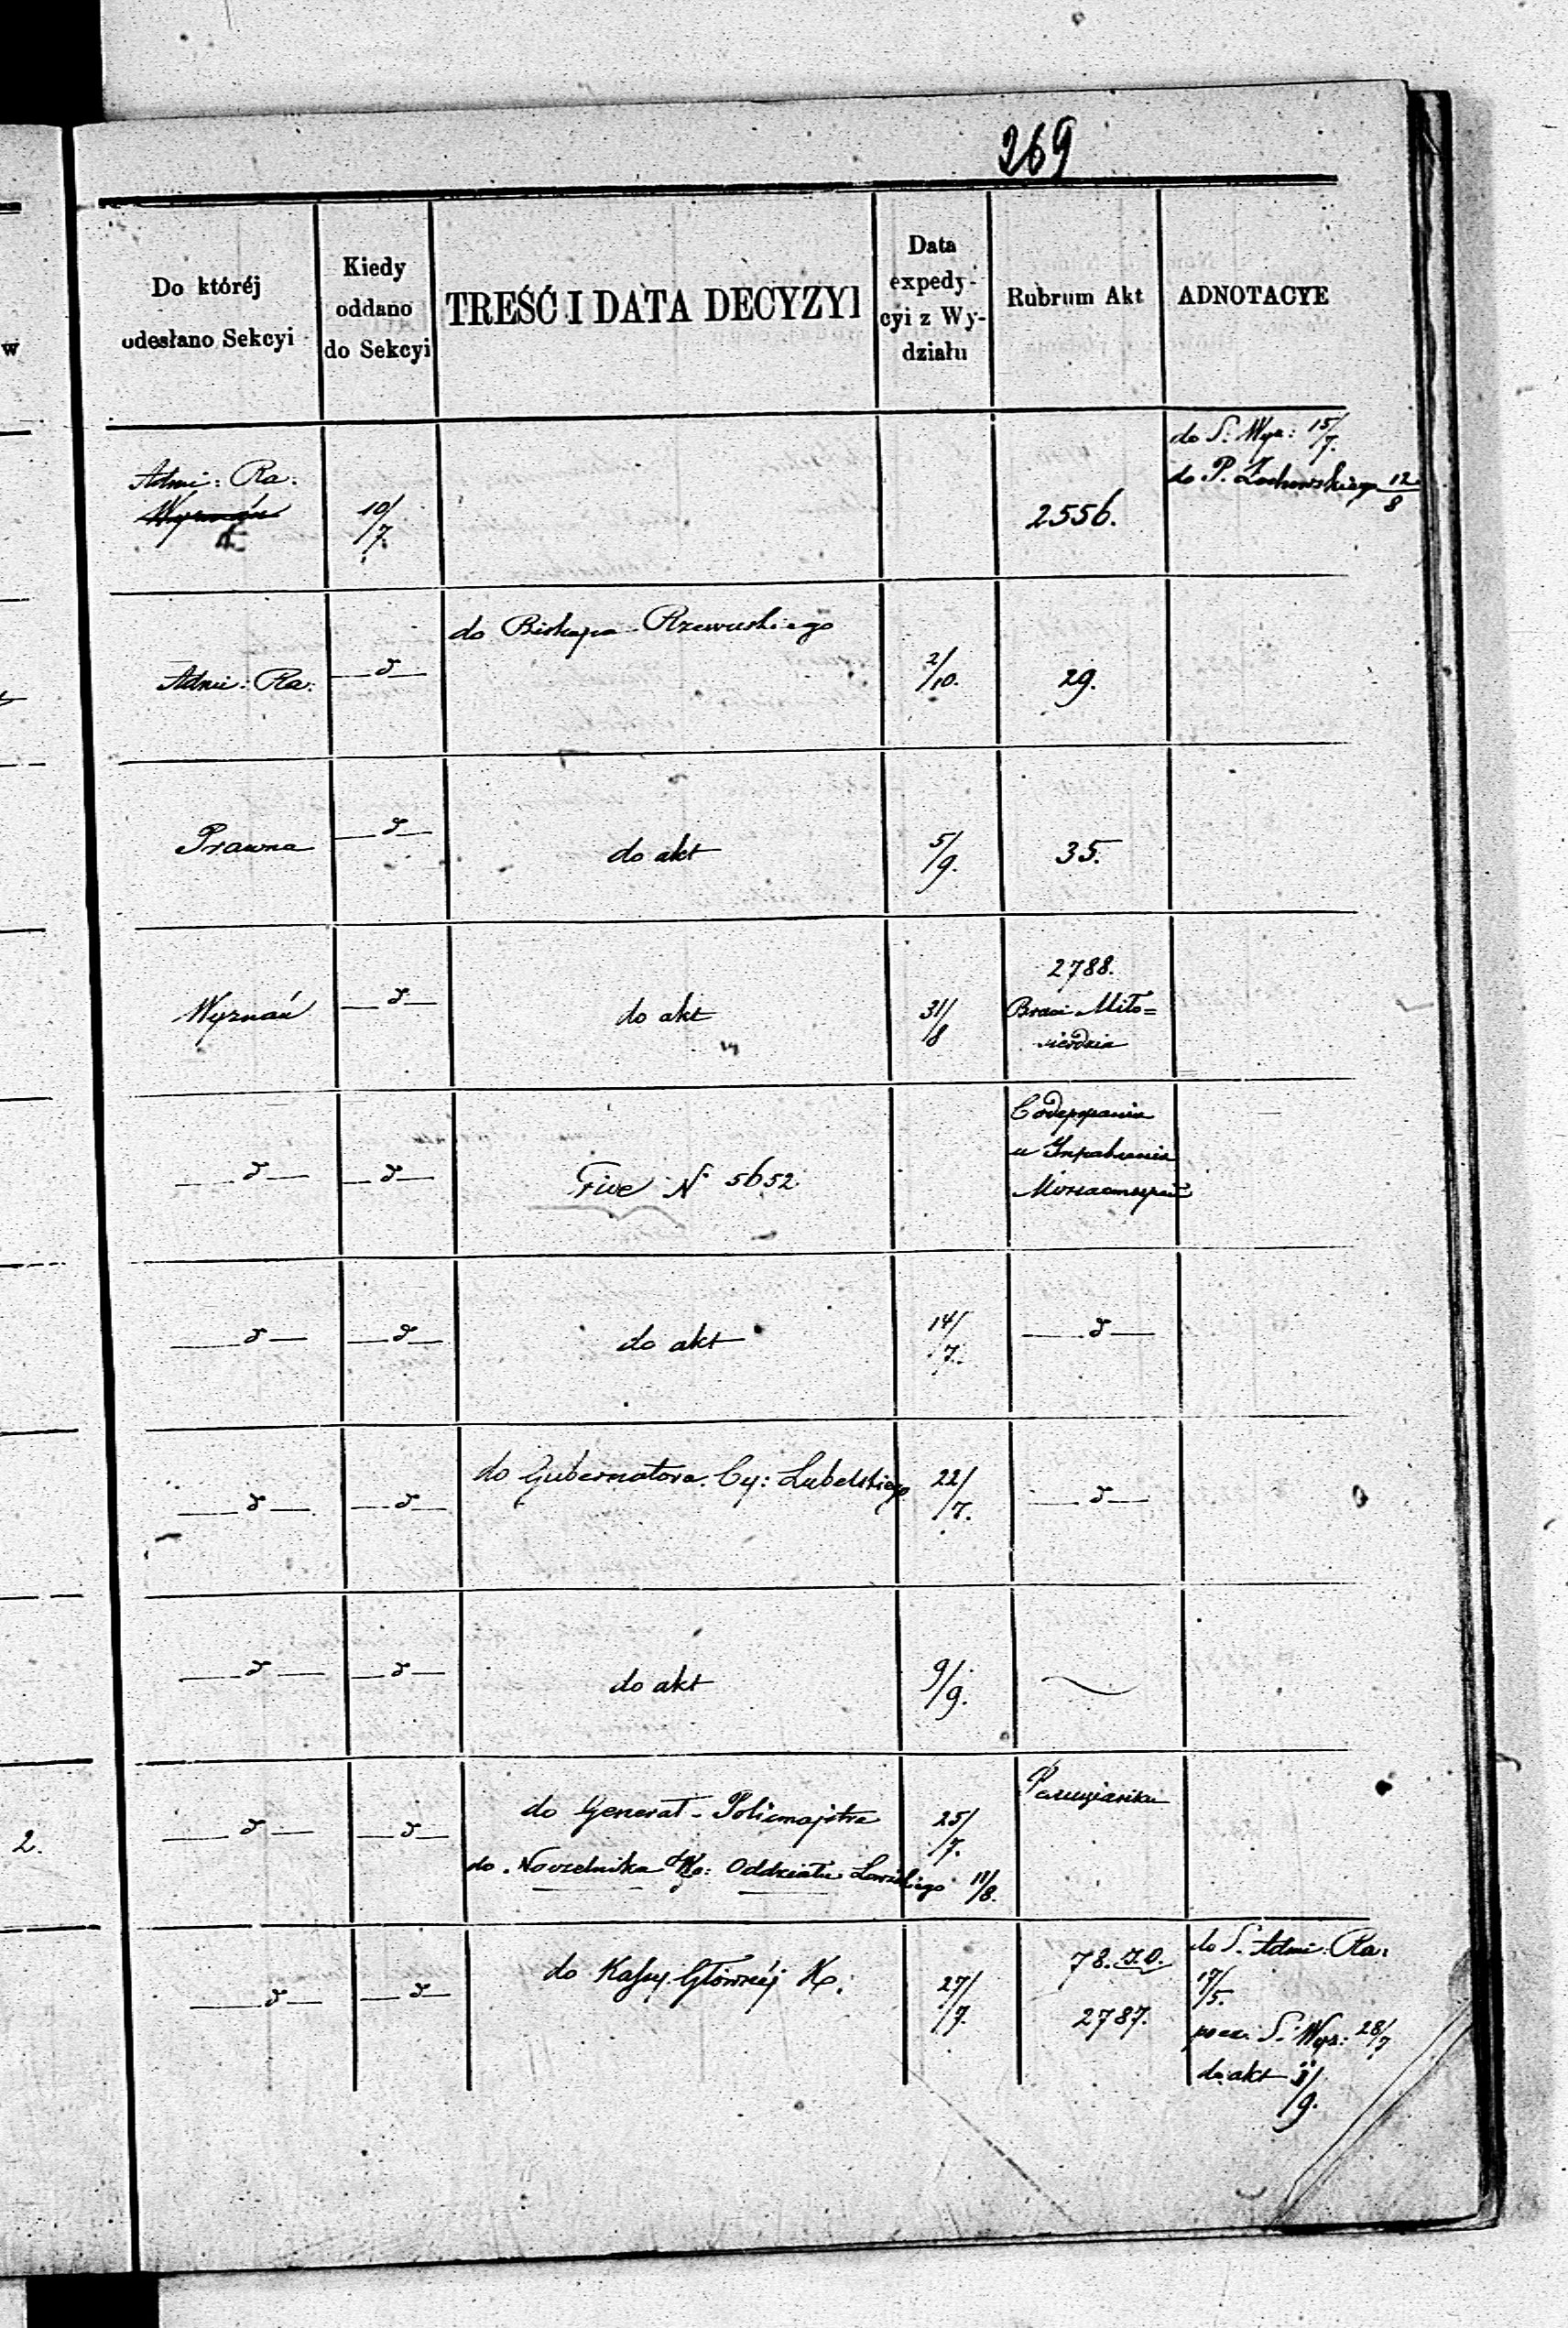 269
Do któréj odesłano Sekcyi
Kiedy oddano do Sekcyi
TREŚĆ I DATA DECYZYI
Data expedy- cyi z Wy- działu
Rubrum Akt
ADNOTACYE
Admi: Ra:
Wyznań
10/7.
2556.
do S. Wyz: 15/7.
do P. Żochowskiego 12/8
do Biskupa Rzewuskiego
Admi: Ra: —d— 2/10. 29.
Prawna —d— do akt 5/9. 35.
2788.
Wyznań —d— do akt 31/8 Braci Miło=
sierdzia
—d— —d— Five N 5652.
Содержанія
и Управленія
Монастырей
—d— —d— do akt 14/7. —d—
do Gubernatora Cy: Lubelskiego 22/7.
—d— —d— —d—
—d— —d— do akt 9/9.
do Generał-Policmajstra 25/7.
—d— —d—
do Naczelnika Wo: Oddziału 11/8.
do Kassy Głównéj Kp: 27/7.
—d— —d—
78.
2787.
do S. Admi: Ra:
17/5.
S. Wyz: 28/7
do akt /9.
2.
w